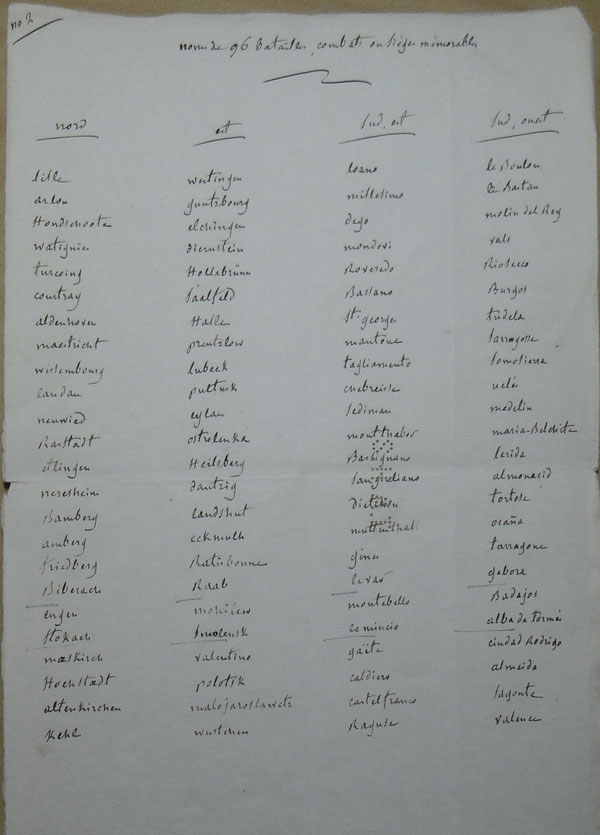 no 2
noms de 96 batailles, combats ou sièges mémorables
nord
lille
arlon
Hondschoote
watignies
turcoing
courtray
aldenhoven
maestricht
wissembourg
landau
neuwied
Rastadt
etlingen
neresheim
Bamberg
amberg
friedberg
Biberach
engen
Stokach
mœskirch
Hochstædt
altenkirchen
Kehl
est
wertingen
guntzbourg
elchingen
Diernstein
Hollabrünn
Saalfeld
Halle
prentzlow
lubeck
pultusk
eylau
ostrolenka
Heilsberg
dantzig
landshut
eckmulh
Ratisbonne
Raab
mohilew
Smolensk
valentino
polotsk
malojaroslawetz
wurschen
Sud, est
loano
millesimo
dego
mondovi
Roveredo
Bassano
St. georges
mantoue
tagliamento
chebreisse
Sediman
montthabor
Bassignano
San giuliano
Dietikon
muttenthal
gênes
le var
montebello
le mincio
gaëte
caldiero
castelfranco
Raguse
Sud, ouest
le Boulou
le Bastan
molin del Rey
vals
Riosecco
Burgos
tudela
Sarragosse
Somosierra
uclès
medelin
maria-Belchite
lerida
almonacid
tortose
ocaña
tarragone
gebora
Badajos
alba de tormès
ciudad Rodrigo
almeida
Sagonte
valence